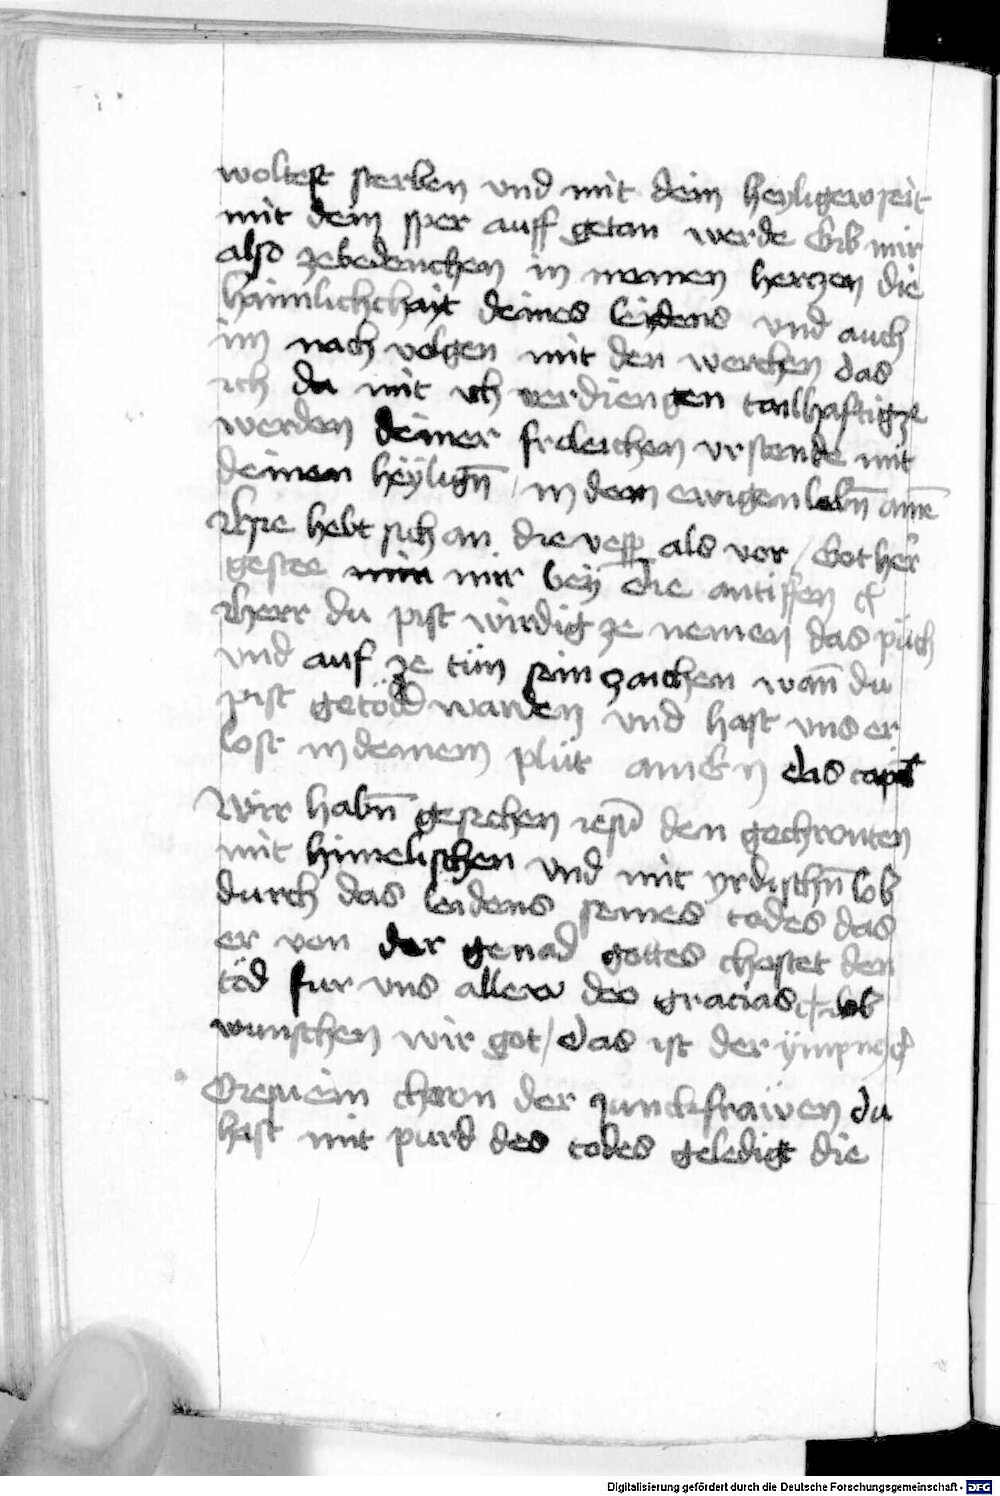 woltest sterben vnd mit dein heyligew seit
mit dem sper auff getan werde Gib mir
also zebedenchen in meinen herczen die
haimlichchait deines leidens vnd auch
im nach volgen mit den werchen das
ich da mit ich verdiengen tailhaftig ze
werden deiner froleichen vrstende mit
deinen heÿlign̄ / in dem ewigen lebn̄ ame̅
Hye hebt sich an die vesp̲ als vor / Got her̄
gestee mir beÿ die antiffen
Herr du pist wirdig ze nemen das püch
vnd auf ze tün sein zaichen wan̄ du
pist getödd warden vnd hast vns er
lost in deinem plüt amen das capitl
Wir habn̄ gesechen iesū den gechronten
mit himelischen vnd mit yrdischn̄ lob
durch das leidens seines todes das
er von der genad gottes chostet den
töd fur vns allew deo gracias lob
wunschen wir got / das ist der ÿmpnꝫ
O iesu ein chron der junckfrawen du
hast mit purd des todes geledigt die
Digitalisierung gefördert durch die Deutsche Forschungsgemeinschaft - DFG